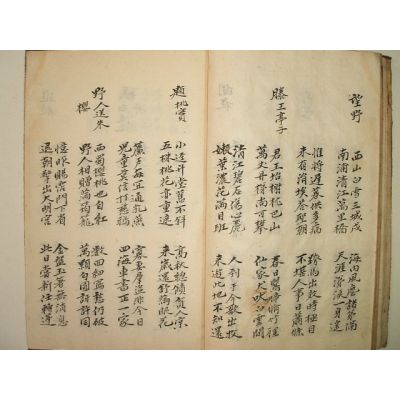 望野
西山白雪三城戍 海內風塵諸弟隔
南浦清江萬里橋 天涯涕淚一身遙
惟將遲暮供多病 跨馬出郊時極目
未有涓埃答聖朝 不堪人事日蕭條
滕王亭子
君王臺榭枕巴山 春日鶯啼脩竹裡
萬丈丹梯尚可攀 仙家犬吠白雲間
清江碧石傷心麗 人到于今歌出牧
嫩葉濃花滿目班 來遊此地不知還
題桃實
小逕升堂舊不斜 高秋總餽貧人實
五株桃花亦從遮 來歲還舒滿眼花
簾戶每宜通乳燕 寡妻群盜非今日
兒童莫信打慈鴉 四海車書正一家
野人送朱櫻
西蜀櫻桃也自紅 數回細寫愁仍破
野人相贈滿筠籠 萬顆勻圓訝許同
憶昨賜霑門下省 金盤玉箸無消息
退朝擎出大明宮 此日嘗新任轉蓬